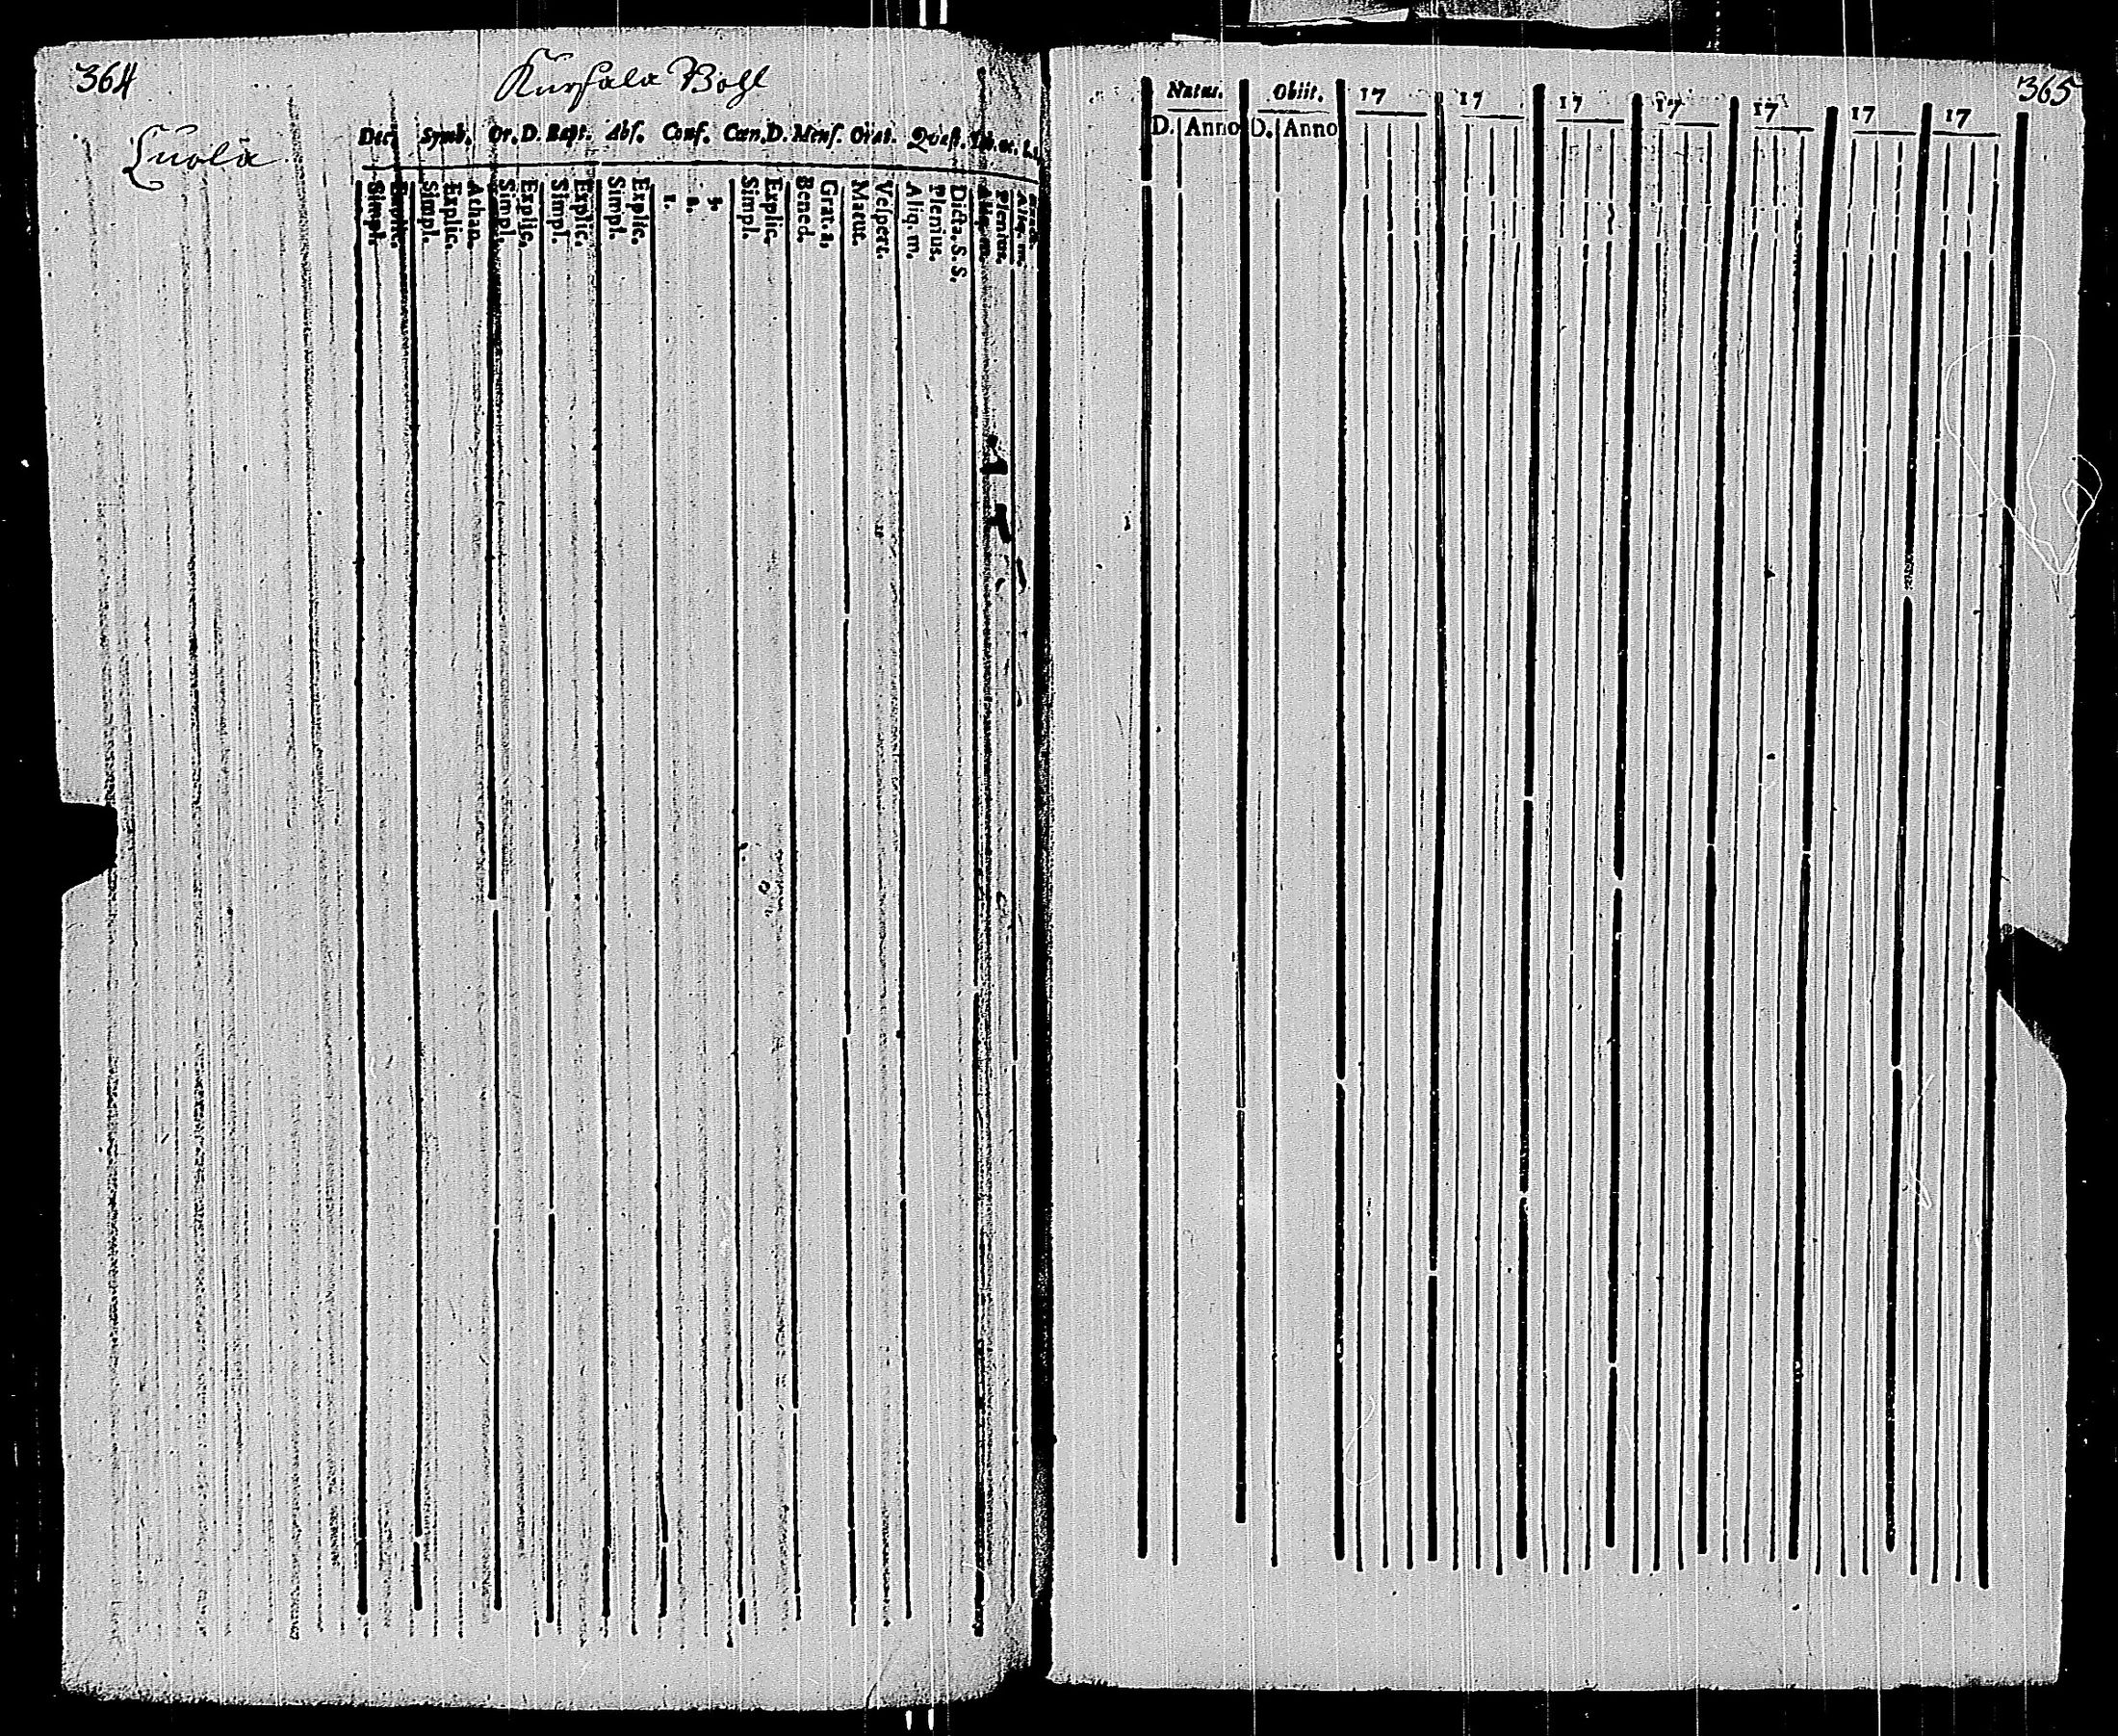 364
Kursala Bohl
Luola
Dec. Symb. Or. D. Bapt. Abs. Conf. Cœn. D. Mens. Orat. Quæst.
Simpl. Explic. Simpl. Explic. Athan. Simpl. Explic. Simpl. Explic. Simpl. Explic. 1. 2. 3. Simpl. Explic. Bened. Grat. a. Matut. Vespert. Aliq. m. Plenius. Dicta. S. S. Aliq. m. Plenius.
365
Natus. Obiit. 17 17 17 17 17 17 17
D. Anno D. Anno